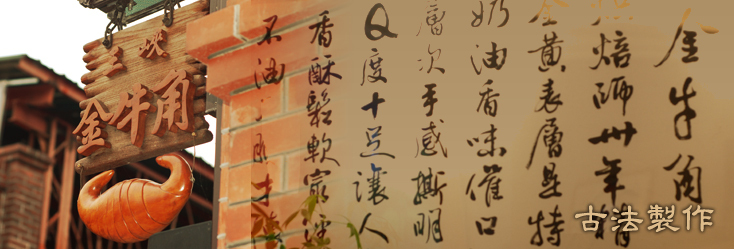 三峽
金牛角
金牛角
焙師卅年
金黃表層是特
奶油香味催口
層次手感撕明
Q度十足讓人
香酥鬆軟
不油
古法製作